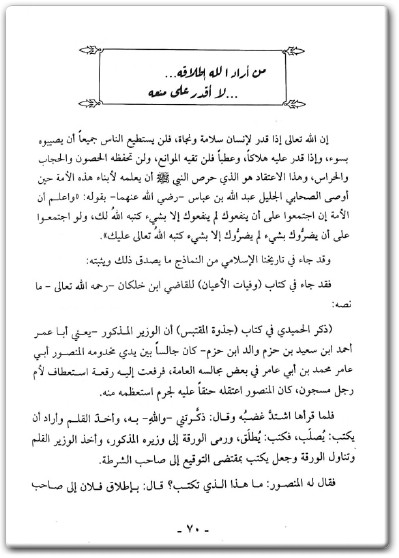 من أراد الله إطلاقه...
...لا أقدر على منعه
إن الله تعالى إذا قدر لإنسان سلامة ونجاة، فلن يستطيع الناس جميعاً أن يصيبوه
بسوء، وإذا قدر عليه هلاكاً، وعطباً فلن تقيه الموانع، ولن تحفظه الحصون والحجاب
والحراس، وهذا الاعتقاد هو الذي حرص النبي ﷺ أن يعلمه لأبناء هذه الأمة حين
أوصى الصحابي الجليل عبد الله بن عباس -رضي الله عنهما- بقوله: «واعلم أن
الأمة إن اجتمعوا على أن ينفعوك لم ينفعوك إلا بشيء كتبه اللهُ لك، ولو اجتمعوا
على أن يضرُّوك بشيء لم يضرُّوك إلا بشيء كتبه اللهُ تعالى عليك».
وقد جاء في تاريخنا الإسلامي من النماذج ما يصدق ذلك ويثبته:
فقد جاء في كتاب (وفيات الأعيان) للقاضي ابن خلكان -رحمه الله تعالى - ما
نصه:
(ذكر الحميدي في كتاب (جذوة المقتبس) أن الوزير المذكور -يعني أبا عمر
أحمد ابن سعيد بن حزم والد ابن حزم- كان جالساً بين يدي مخدومه المنصور أبي
عامر محمد بن أبي عامر في بعض مجالسه العامة، فرفعت إليه رقعة استعطاف لأم
رجل مسجون، كان المنصور اعتقله حنقاً عليه لجرم استعظمه منه.
فلما قرأها اشتدَّ غضبُه وقال: ذكَّرتني -والله- به، وأخذ القلم وأراد أن
يكتب: يُصلَب، فكتب: يُطلَق، ورمى الورقة إلى وزيره المذكور، وأخذ الوزير القلم
وتناول الورقة وجعل يكتب بمقتضى التوقيع إلى صاحب الشرطة.
فقال له المنصور: ما هذا الذي تكتب؟ قال: بإطلاق فلان إلى صاحب
- ٧٠ -